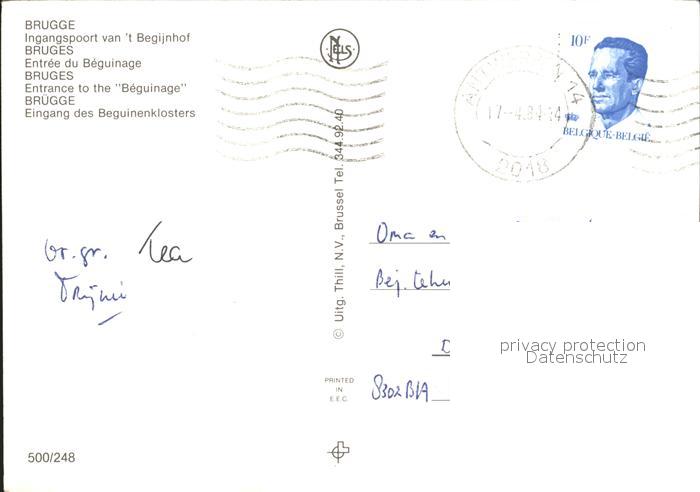 BRUGGE
Ingangspoort van 't Begijnhof
BRUGES
Entrée du Béguinage
BRUGES
Entrance to the "Béguinage"
BRÜGGE
Eingang des Beguinenklosters
NELS
10F
BELGIQUE-BELGIË
ANTWERPEN 14
17-4.84
2018
© Uitg. Thill, N.V., Brussel Tel. 344.92.40
Vr. gr.
Oma en
Bej.
8302BA
privacy protection
Datenschutz
PRINTED
IN
E.E.C.
500/248